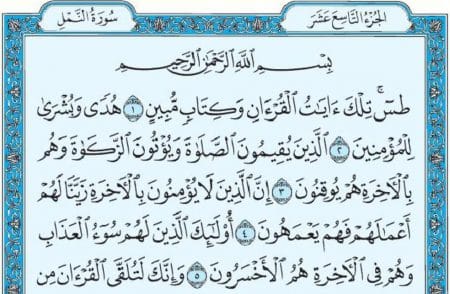 الجُزْءُ التَّاسِعَ عَشَرَ
سُورَةُ النَّمْلِ
بِسْمِ اللَّهِ الرَّحْمَٰنِ الرَّحِيمِ
طسٓۚ تِلْكَ ءَايَٰتُ ٱلْقُرْءَانِ وَكِتَابٖ مُّبِينٍ ١ هُدٗى وَبُشْرَىٰ
لِلْمُؤْمِنِينَ ٢ ٱلَّذِينَ يُقِيمُونَ ٱلصَّلَوٰةَ وَيُؤْتُونَ ٱلزَّكَوٰةَ وَهُم
بِٱلْأٓخِرَةِ هُمْ يُوقِنُونَ ٣ إِنَّ ٱلَّذِينَ لَا يُؤْمِنُونَ بِٱلْأٓخِرَةِ زَيَّنَّا لَهُمْ
أَعْمَٰلَهُمْ فَهُمْ يَعْمَهُونَ ٤ أُوْلَٰٓئِكَ ٱلَّذِينَ لَهُمْ سُوٓءُ ٱلْعَذَابِ
وَهُمْ فِي ٱلْأٓخِرَةِ هُمُ ٱلْأَخْسَرُونَ ٥ وَإِنَّكَ لَتُلَقَّى ٱلْقُرْءَانَ مِن